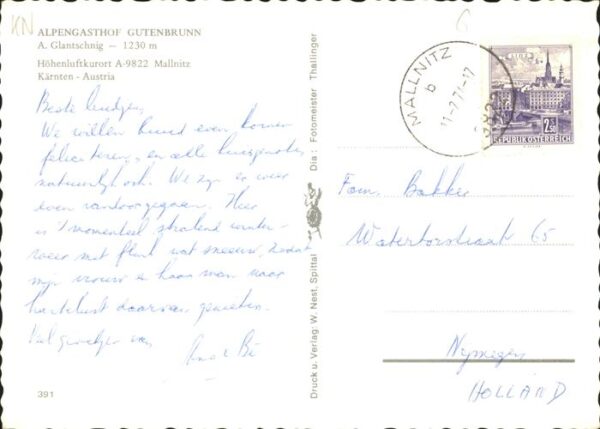 KN
ALPENGASTHOF GUTENBRUNN
A. Glantschnig — 1230 m
Höhenluftkurort A-9822 Mallnitz
Kärnten - Austria
Beste
We willen even komen
feliciteren, en alle huisgenoten
natuurlijk ook. We zijn er weer
even vandoorgegaan. Hier
is 't momenteel stralend winter-
weer met flink wat sneeuw, zodat
mijn vrouw en haar man naar
hartelust daarvan genieten.
Veel groetjes van
391
Druck u. Verlag W. Nest, Spittal
Dia: Fotomeister Thallinger
MALLNITZ
b
9822
LINZ
2.50
REPUBLIK ÖSTERREICH
Fam. Bakker
Watertorstraat 65
Nijmegen
HOLLAND